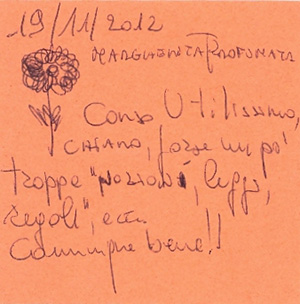 19/11/2012
MARGHERITA PROFUMATA
Corso Utilissimo,
CHIARO, forse un po'
troppe "nozioni, leggi,
regole", ecc.
Comunque bene!!